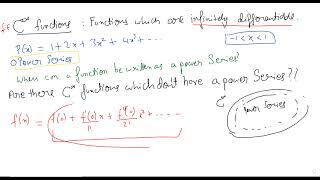 C^∞ functions : Functions which are infinitely differentiable.
P(x) = 1 + 2x + 3x² + 4x³ + ---
-1 < x < 1
Power Series
When can a function be written as a power series?
Are there C^∞ functions which don't have a power series??
C^∞
Power Series
f(x) = f(0) + f'(0)x/1! + f''(0)/2! x² + -----